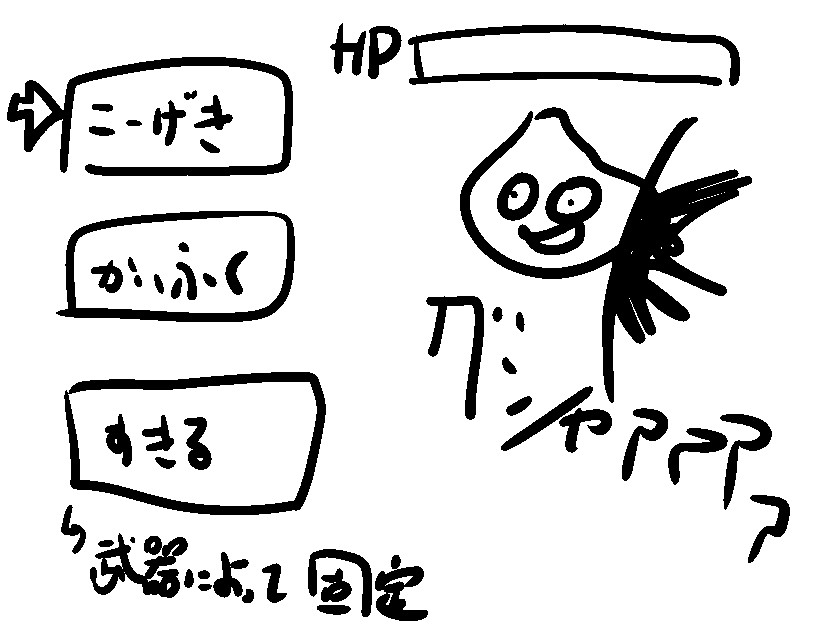 HP
こーげき
かいふく
すきる
↳武器によって固定
グシャアアアア